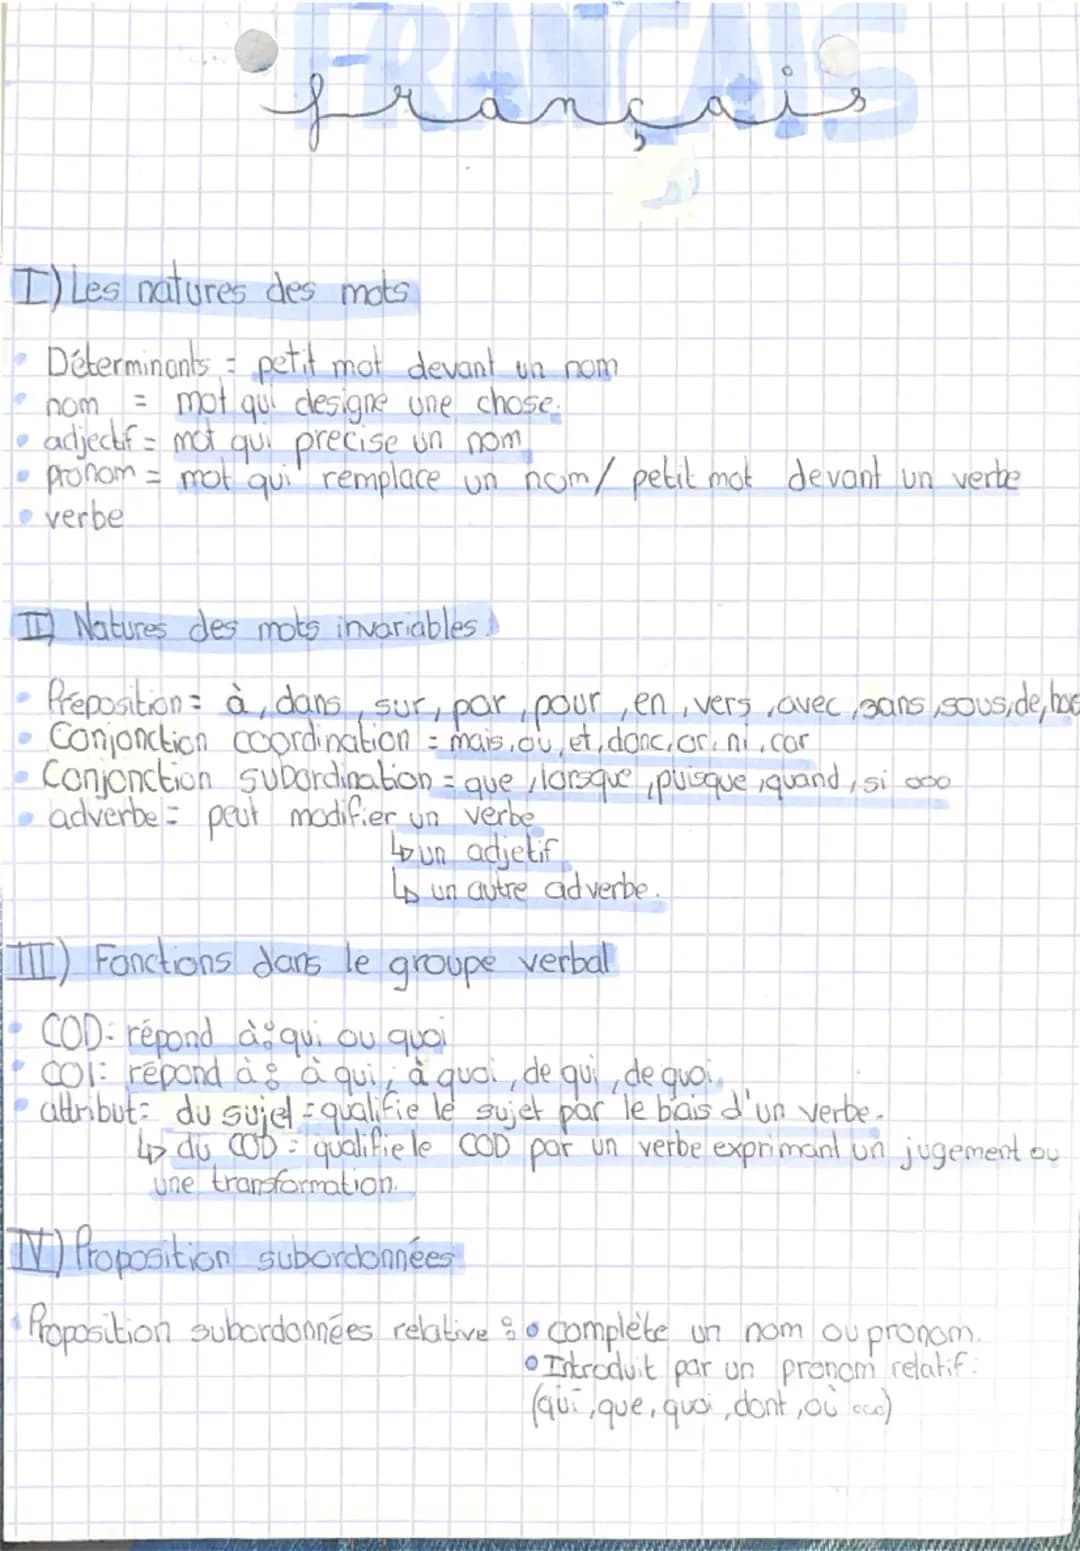 FRANÇAIS
français
I) Les natures des mots
Déterminants = petit mot devant un nom
nom = mot qui designe une chose.
adjectif = mot qui precise un nom
pronom = mot qui remplace un nom / petit mot devant un verbe
verbe
II) Natures des mots invariables
Préposition = à, dans, sur, par, pour, en, vers, avec, sans, sous, de,
Conjonction coordination = mais, ou, et, donc, or, ni, car
Conjonction subordination = que, lorsque, puisque, quand, si ooo
adverbe = peut modifier un verbe
↳ un adjetif
↳ un autre adverbe.
III) Fonctions dans le groupe verbal
COD = répond à : qui ou quoi
COI = répond à : à qui, à quoi, de qui, de quoi.
attribut = du sujet = qualifie le sujet par le biais d'un verbe.
↳ du COD = qualifie le COD par un verbe exprimant un jugement ou
une transformation.
IV) Proposition subordonnées
Proposition subordonnées relative : • complète un nom ou pronom.
• Introduit par un pronom relatif :
(qui, que, quoi, dont, où ooo)